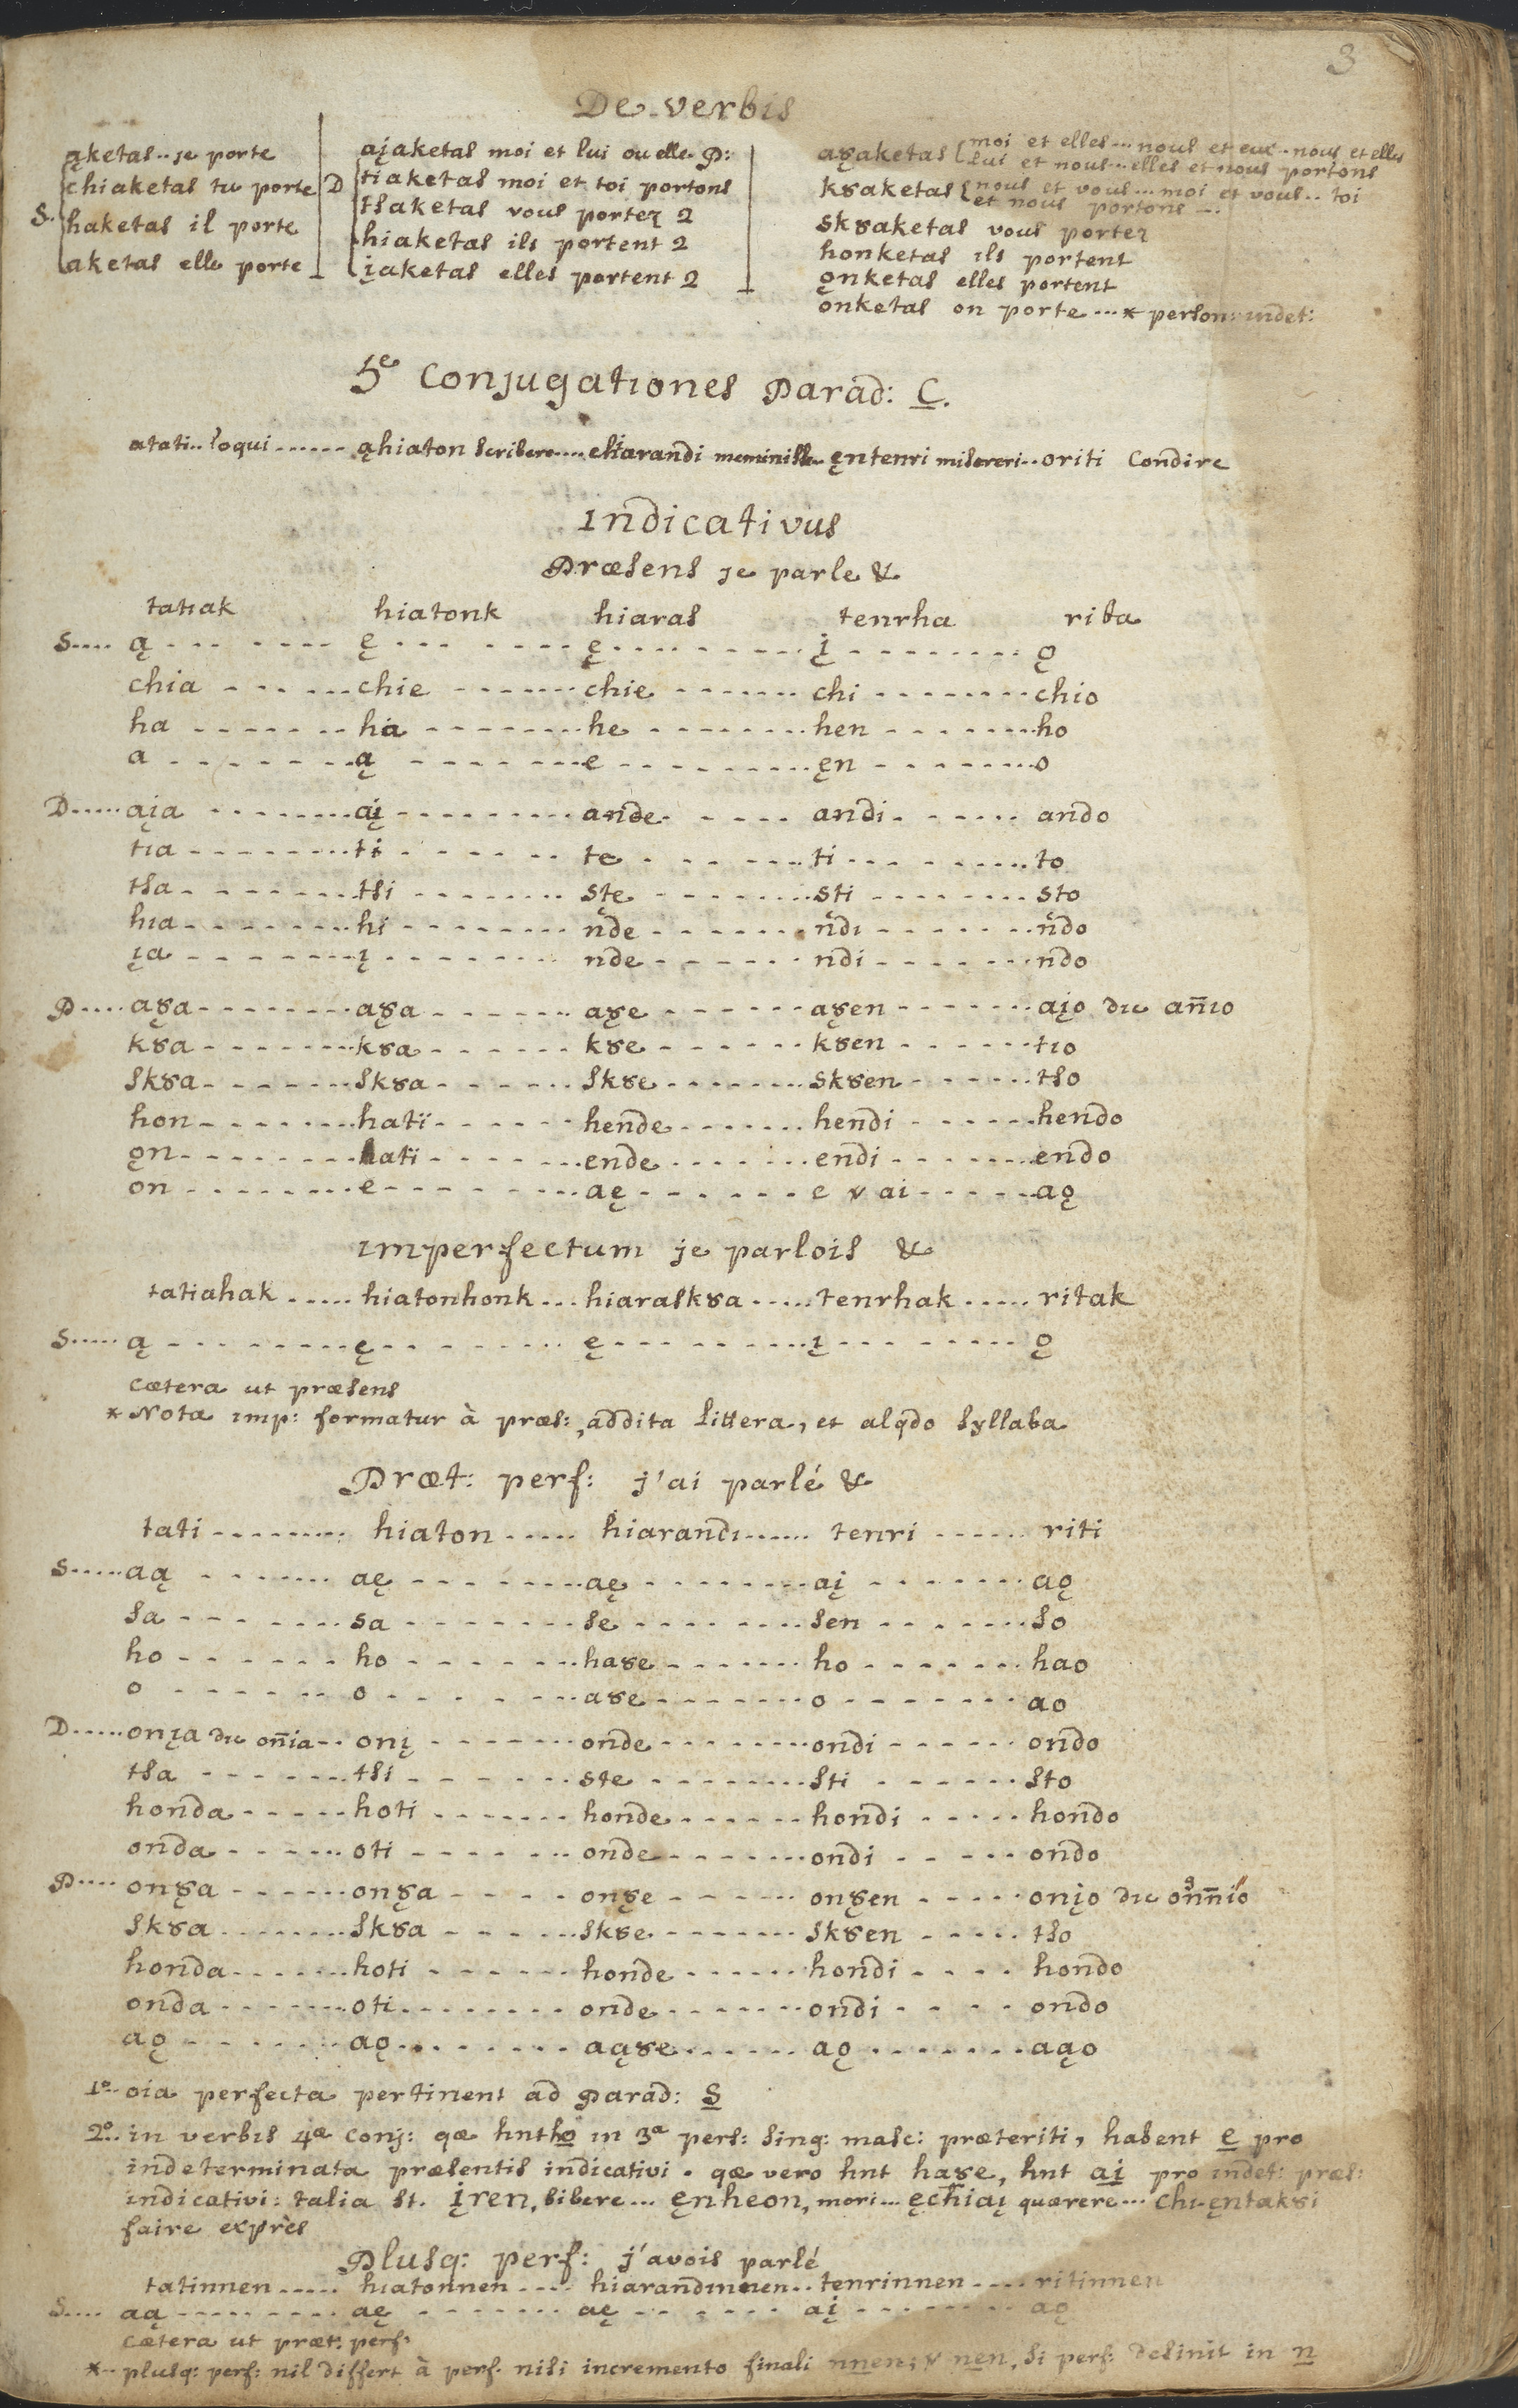 3
De verbis
ąketas.. je porte
chiaketas tu porte
S. haketas il porte
aketas elle porte
aįaketas moi et lui ou elle P:
D tiaketas moi et toi portons
tsaketas vous portez 2
hiaketas ils portent 2
įaketas elles portent 2
aȣ̨aketas { moi et elles... nous et eux.. nous et elles
lui et nous.. elles et nous portons
kȣaketas { nous et vous... moi et vous.. toi
et nous portons
skȣaketas vous portez
honketas ils portent
ǫnketas elles portent
onketas on porte...* person: indet:
5e Conjugationes Parad: C.
atati.. loqui ...... ąhiaton scribere.... ehiarandi meminisse.. ęntenri misereri.. oriti Condire
Indicativus
Præsens je parle &
tatiak hiatonk hiaras tenrha rita
S.... ą ę ę į ǫ
chia chie chie chi chio
ha ha he hen ho
a ą e ęn o
D..... aįa aį ande andi ando
tia ti te ti to
tsa tsi ste sti sto
hia hi nde ndi ndo
įa į nde ndi ndo
P.... aȣ̨a aȣ̨a aȣ̨e aȣ̨en aįo dic añio
kȣa kȣa kȣe kȣen tio
skȣa skȣa skȣe skȣen tso
hon hati hende hendi hendo
ǫn hati ende endi endo
on e aę e v ai aǫ
imperfectum je parlois &
tatiahak ...... hiatonhonk ... hiaraskȣa ..... tenrhak ..... ritak
S..... ą ę ę į ǫ
cætera ut præsens
* Nota imp: formatur à præs:, addita littera, et alqdo syllaba
Præt: perf: j'ai parlé &
tati hiaton hiarandi tenri riti
S..... aą aę aę aį aǫ
sa sa se sen so
ho ho haȣe ho hao
o o aȣe o ao
D..... onįa dic oñia.. onį onde ondi ondo
tsa tsi ste sti sto
honda hoti honde hondi hondo
onda oti onde ondi ondo
P.... onȣ̨a onȣ̨a onȣ̨e onȣ̨en onįo dic onñio
skȣa skȣa skȣe skȣen tso
honda hoti honde hondi hondo
onda oti onde ondi ondo
aǫ aǫ aąȣe aǫ aąo
1o oia perfecta pertinent ad Parad: S
2o.. in verbis 4æ conj: qæ hnt ho in 3a pers: sing: masc: præteriti, habent e pro
indeterminata præsentis indicativi. qæ vero hnt haȣe, hnt ai pro indet: præs:
indicativi: talia st. įren, bibere... ęnheon, mori... ęchiaį quærere... chi-ęntakȣi
faire exprès
Plusq: perf: j'avois parlé
tatinnen ..... hiatonnen .... hiarandinnen.. tenrinnen .... ritinnen
S.... aą aę aę aį aǫ
cætera ut præt: perf:
*.. plusq: perf: nil differt à perf. nisi incremento finali nnen, v nen, si perf: desinit in n